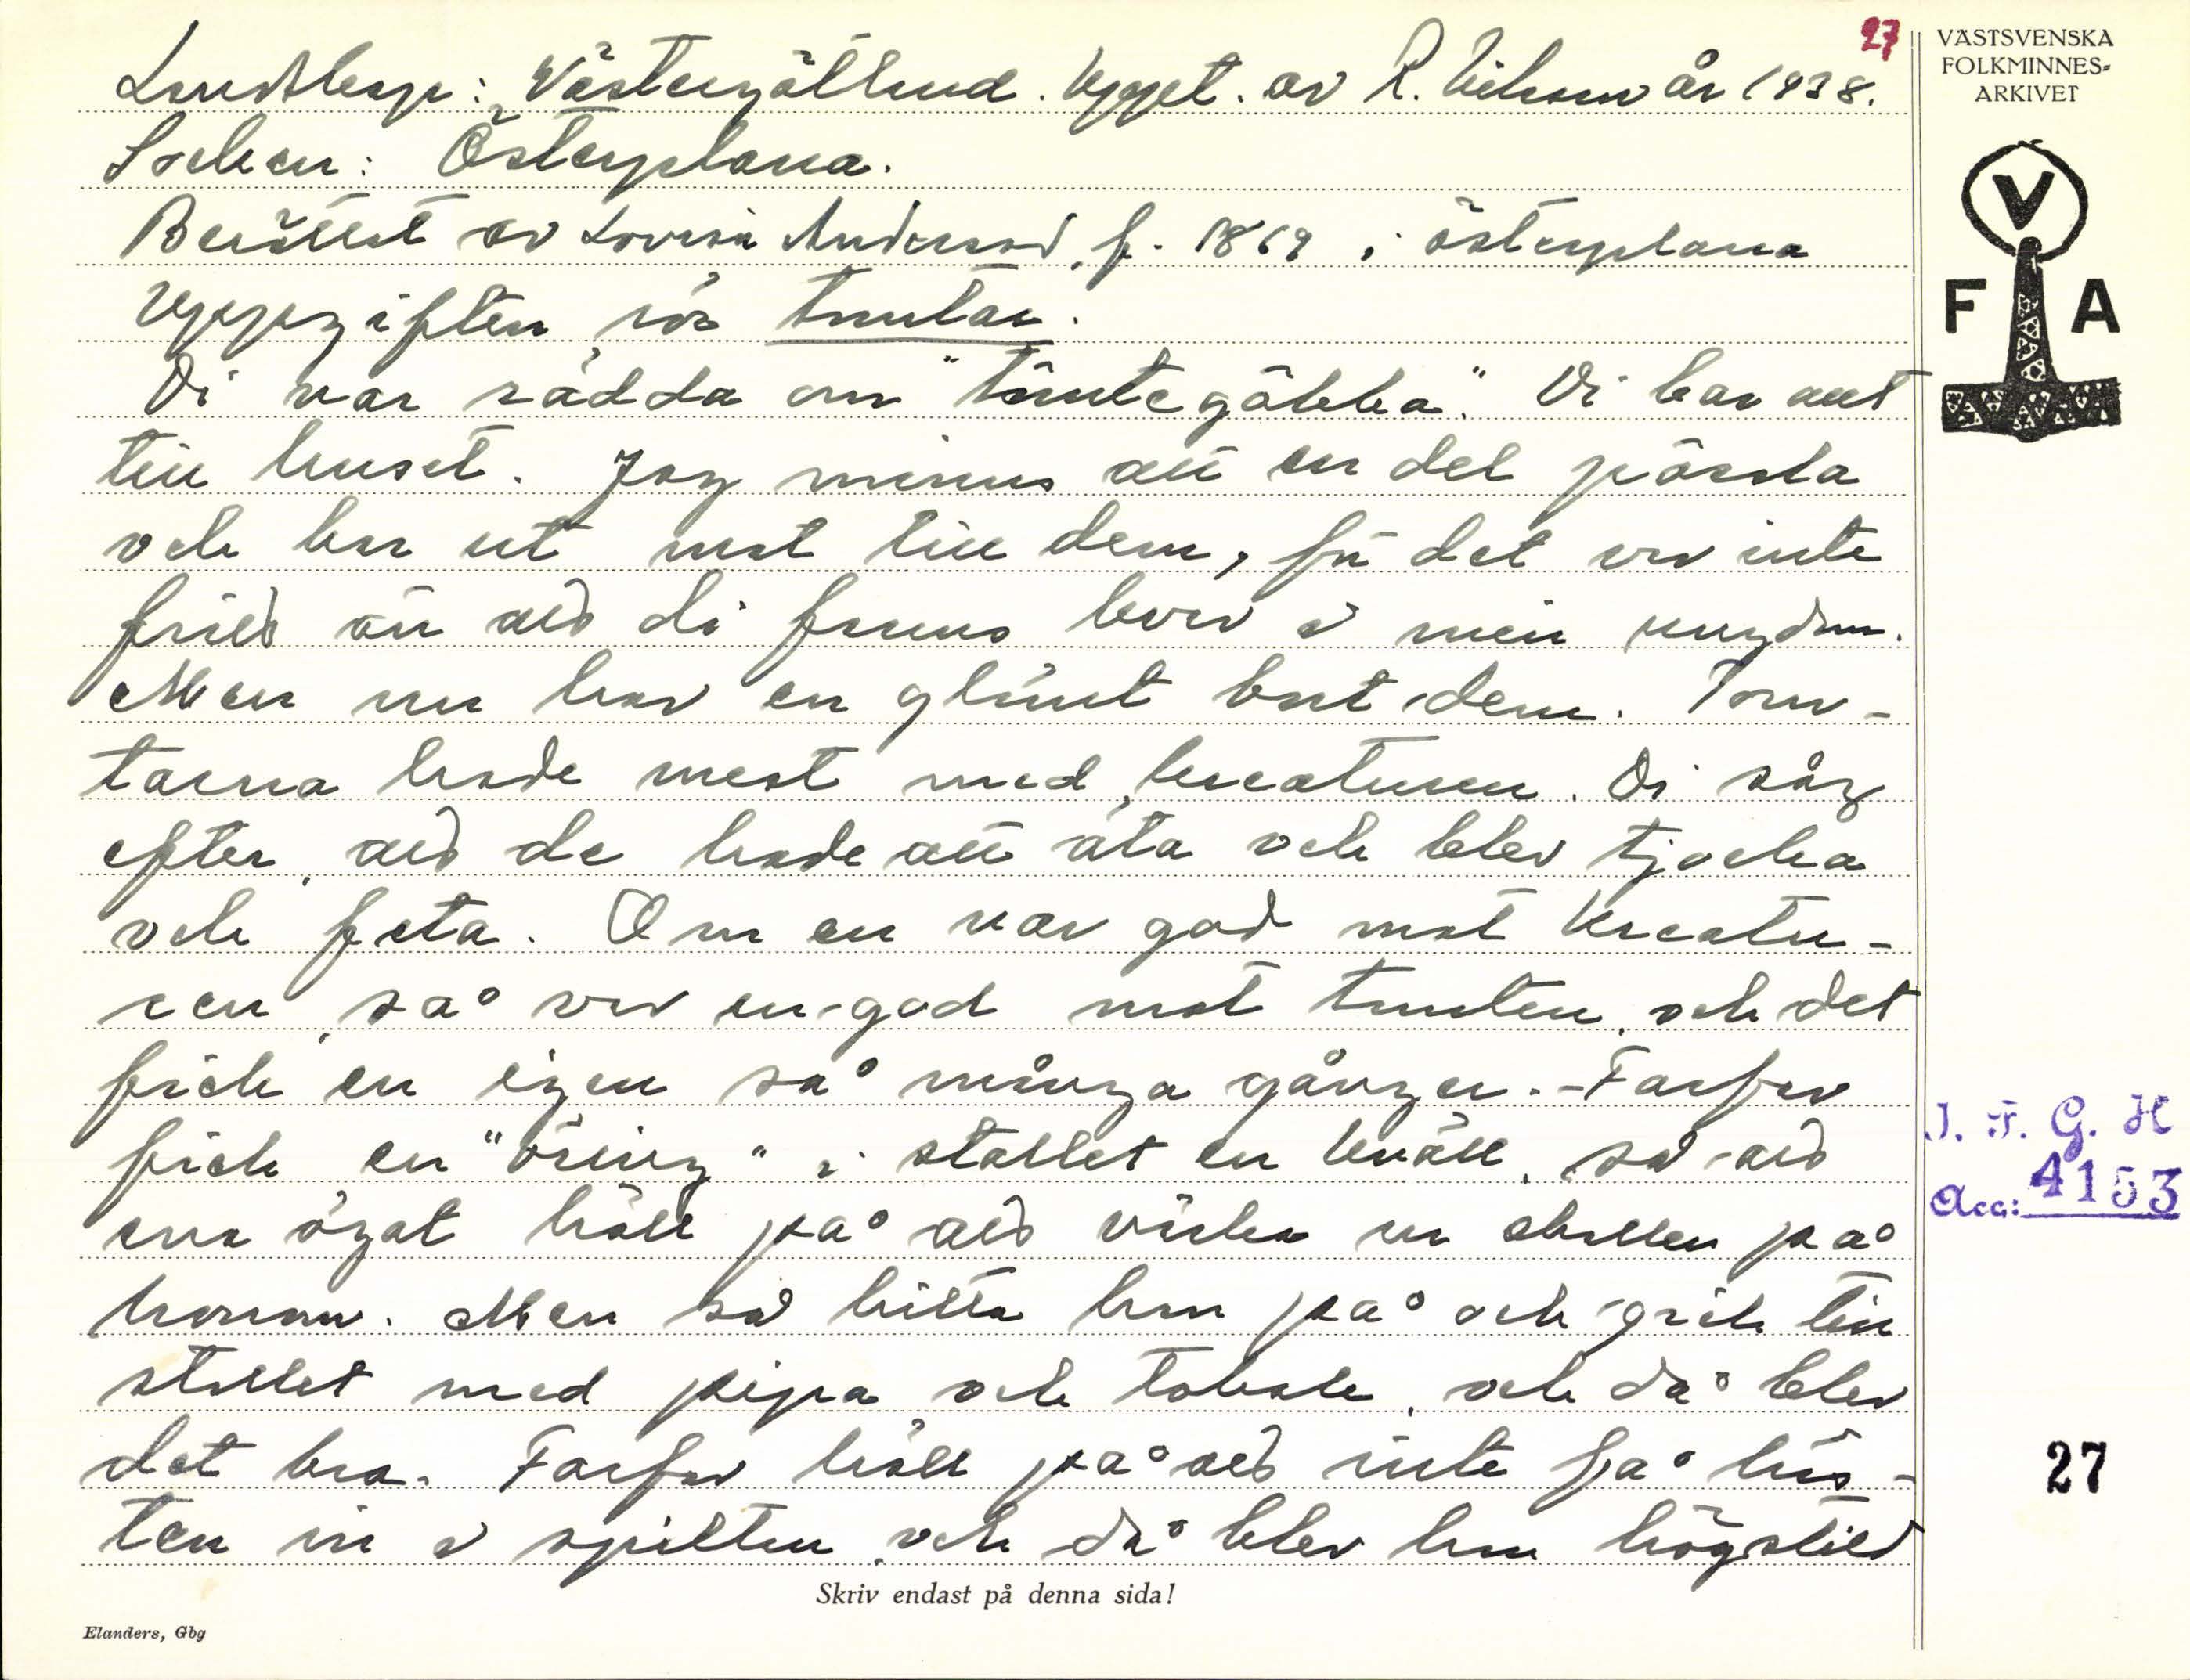 27
Landskap: Västergötland. Uppt. av R. Nilsson år 1938.
Socken: Österplana.
Berättat av Lovisa Andersson, f. 1869 i Österplana
Uppgiften rör tomtar.
Di var rädda om "tomtegôbba". Di bar allt
till huset. Jag minns att en del pössla
och bar ut mat till dem, för det var inte
fritt än att di fanns kvar i min ungdom.
Men nu har en glömt bort dem. Tom-
tarna hade mest med kreaturen. Di såg
efter, att de hade att äta och blev tjocka
och feta. Om en var god mot kreatu-
ren, så var en god mot tomten, och det
fick en igen så många gånger. - Farfar
fick en "öring" i stallet en kväll, så att
ena ögat höll på att virka ur skallen på
honom. Men så hitta han på och gick till
stallet med pipa och tobak, och då blev
det bra. Farfar höll på att inte få häs-
ten in i spiltan, och då blev han högstild
Skriv endast på denna sida!
Elanders, Gbg
VÄSTSVENSKA
FOLKMINNES-
ARKIVET
V
F A
I. F. G. H
Acc: 4153
27